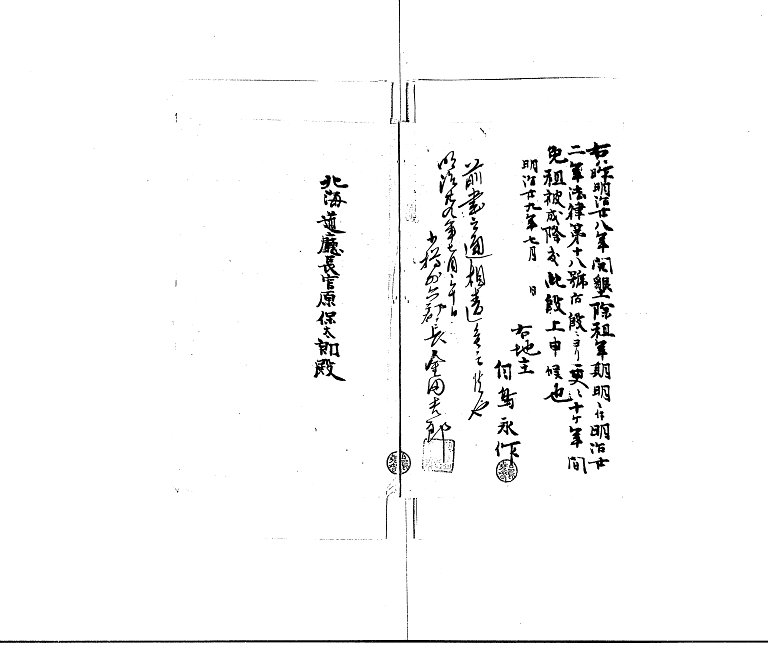 右ハ昨明治廿八年開墾除租年期明ニ付明治廿
二年法律第十八號 段ニヨリ更ニ十ケ年間
免租被成降度此段上申候也
明治廿九年七月 日
右地主
付島永作
前書之通相違無之候也
明治廿九年七月三十日
小樽外六郡長金田吉郎
北海道廳長官原保太郎殿